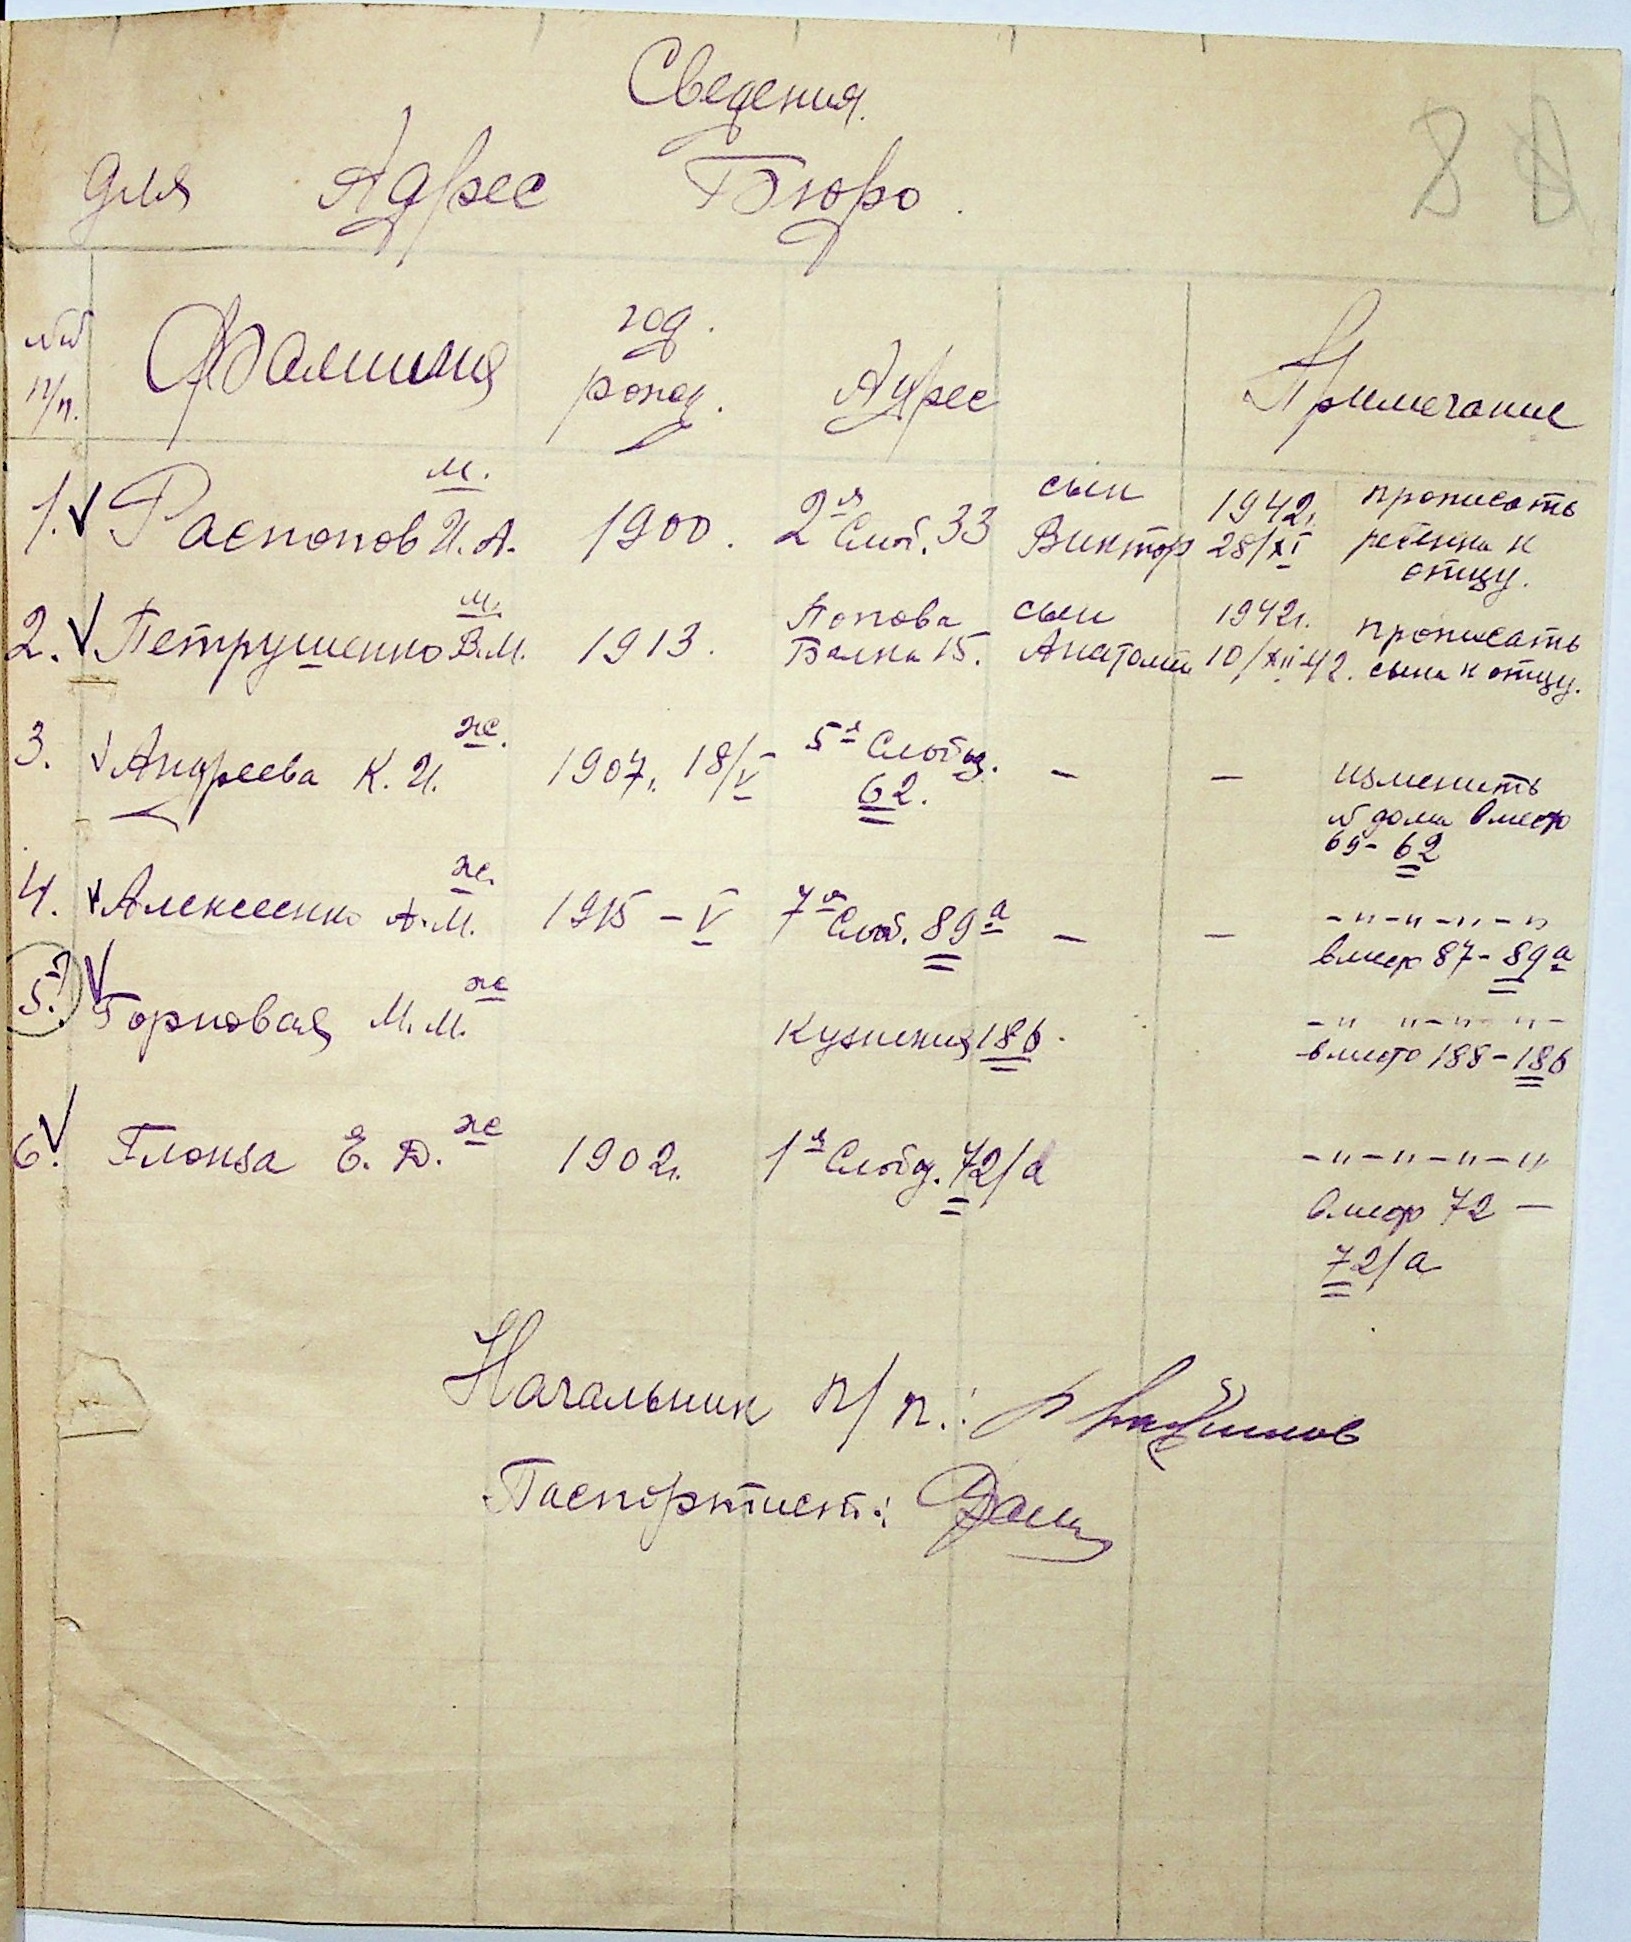 Сведения
для Адрес Бюро.
8
№№ п/п. Фамилия год. рожд. Адрес Примечание
1. Распопов И. А. м. 1900. 2я Слоб. 33 сын Виктор 1942г. 28/XI прописать ребенка к отцу.
2. Петрушенко В.М. м. 1913. Попова Балка 15. сын Анатолий 1942г. 10/XII-42. прописать сына к отцу.
3. Андреева К. И. ж. 1907г. 18/V- 5я Слобод. 62. - - изменить № дома вместо 69-62
4. Алексеенко А.М. ж. 1915 - V 7я Слоб. 89а - - -"-"-"-" вместо 87-89а
5. Горновая М.М. ж Кузнечная 186. -" "-"- "- вместо 188-186
6. Глонза Е. Д. ж 1902г. 1я Слобод. 72/а -"-"-"-" вместо 72 - 72/а
Начальник п/п.:
Паспортист: